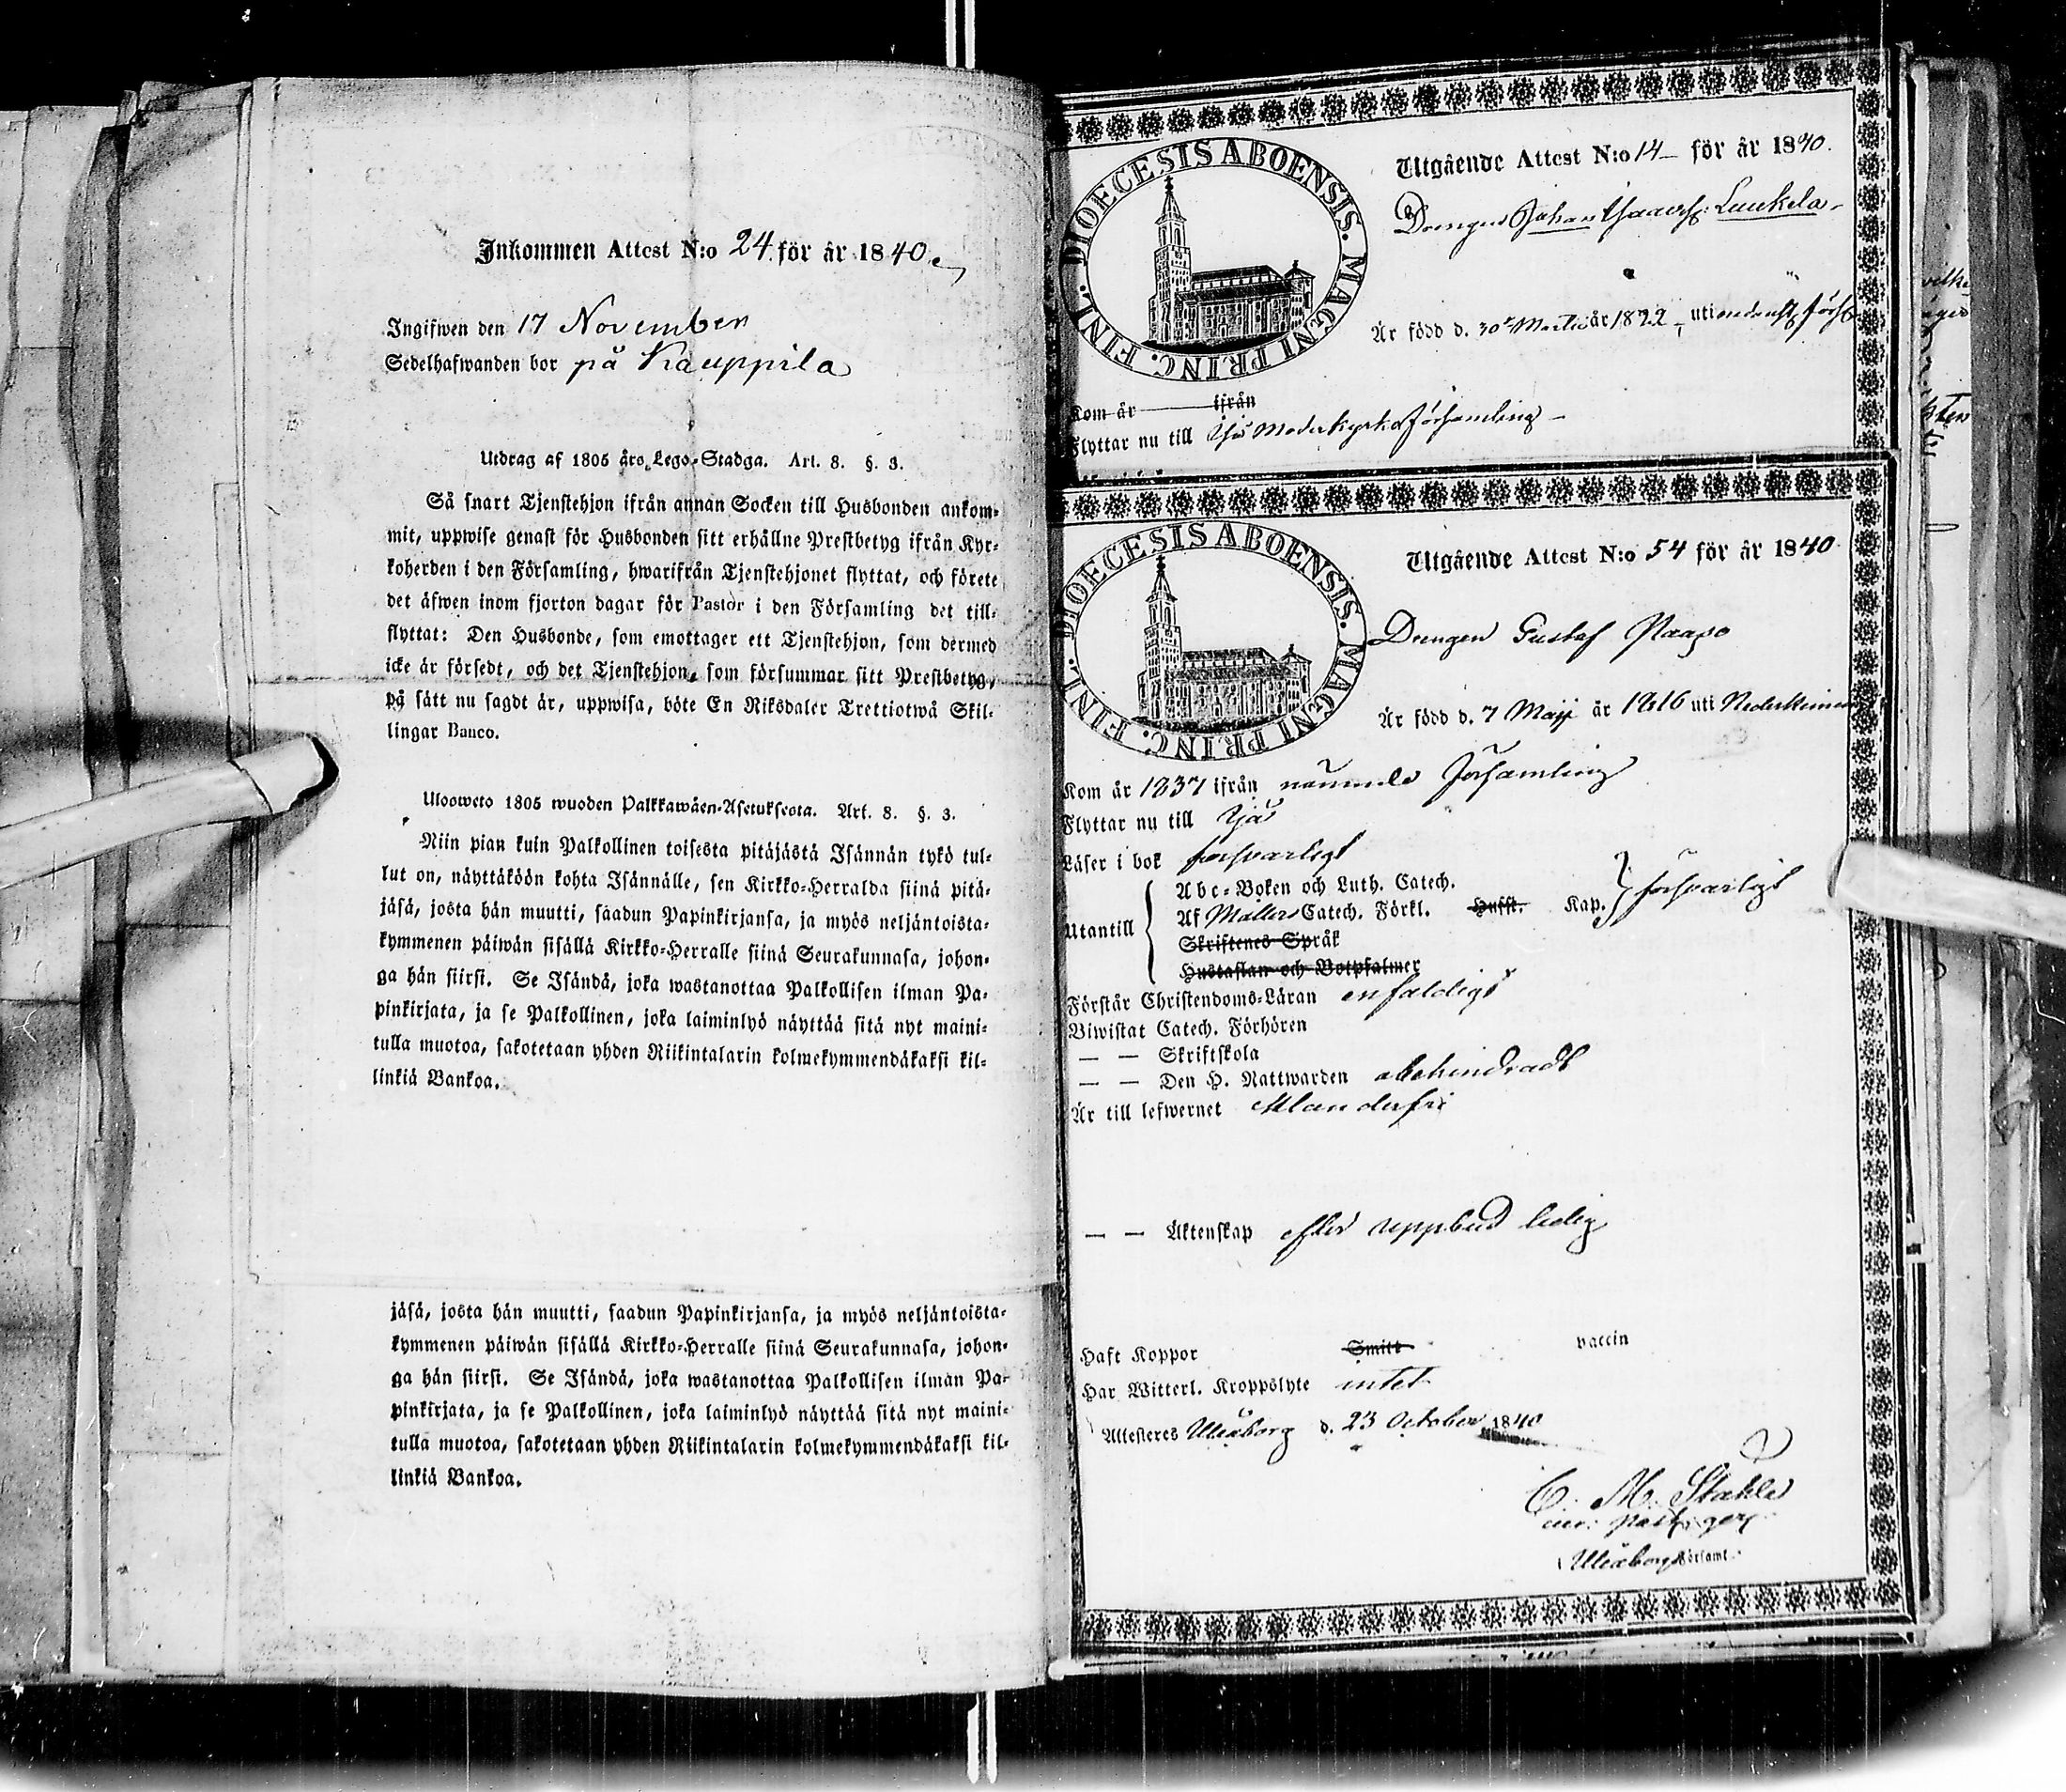 Inkommen Attest N:o 24 för år 1840.
Ingifwen den 17 November
Sedelhafwanden bor på Kauppila
Utdrag af 1805 års Lego-Stadga. Art. 8. §. 3.
Så snart Tjenstehjon ifrån annan Socken till Husbonden ankom-
mit, uppwise genast för Husbonden sitt erhållne Prestbetyg ifrån Kyr-
koherden i den Församling, hwarifrån Tjenstehjonet flyttat, och förete
det äfwen inom fjorton dagar för Pastor i den Församling det till-
flyttat: Den Husbonde, som emottager ett Tjenstehjon, som dermed
icke är försedt, och det Tjenstehjon, som försummar sitt Prestbetyg,
på sätt nu sagdt är, uppwisa, böte En Riksdaler Trettiotwå Skil-
lingar Banco.
Ulosweto 1805 wuoden Palkkawäen-Asetuksesta. Art. 8. §. 3.
Niin pian kuin Palkollinen toisesta pitäjästä Isännän tykö tul-
lut on, näyttäköön kohta Isännälle, sen Kirkko-Herralda siinä pitä-
jäsä, josta hän muutti, saadun Papinkirjansa, ja myös neljäntoista-
kymmenen päiwän sisällä Kirkko-Herralle siinä Seurakunnasa, johon-
ga hän siirsi. Se Isändä, joka wastanottaa Palkollisen ilman Pa-
pinkirjata, ja se Palkollinen, joka laiminlyö näyttää sitä nyt maini-
tulla muotoa, sakotetaan yhden Riikintalarin kolmekymmendäkaksi kil-
linkiä Bankoa.
jäsä, josta hän muutti, saadun Papinkirjansa, ja myös neljäntoista-
kymmenen päiwän sisällä Kirkko-Herralle siinä Seurakunnasa, johon-
ga hän siirsi. Se Isändä, joka wastanottaa Palkollisen ilman Pa-
pinkirjata, ja se Palkollinen, joka laiminlyö näyttää sitä nyt maini-
tulla muotoa, sakotetaan yhden Riikintalarin kolmekymmendäkaksi kil-
linkiä Bankoa.
DIOECESIS ABOENSIS. MAGNI PRINC. FINL.
Utgående Attest N:o 14 för år 1840.
Drengen Johan Isaacss: Laukela
Är född d. 30 Martii år 1822 uti
Kom år ifrån
Flyttar nu till Ijo Moderkyrko församling
DIOECESIS ABOENSIS. MAGNI PRINC. FINL.
Utgående Attest N:o 54 för år 1840
Drengen Gustaf Naapo
Är född d. 7 Maji år 1816 uti
Kom år 1837 ifrån nämnde församling
Flyttar nu till Ijo
Läser i bok försvarligt
Utantill
Abc-Boken och Luth. Catech.
Af Möllers Catech. Förkl. Husst. Kap. försvarligt
Skriftenes Språk
Hustaflan och Botpsalmer
Förstår Christendoms-Läran enfaldigt
Biwistat Catech. Förhören
— — Skriftskola
— — Den H. Nattwarden obehindradt
Är till lefwernet klanderfri
— — Äktenskap efter uppbud ledig
Haft Koppor Smitt vaccin
Har Witterl. Kroppslyte intet
Attesteres Uleåborg d. 23 October 1840
C. M. Stahle
Uleåborgs Församl.